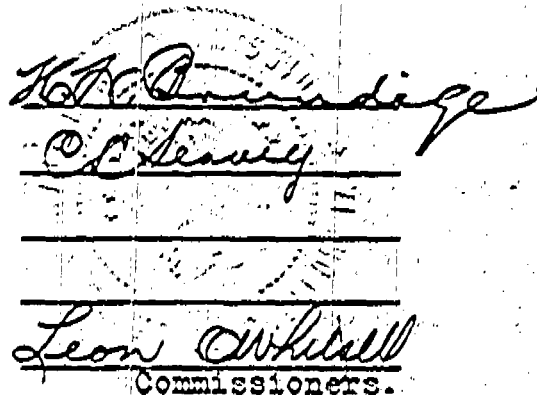 H. W. Brundige
C. L. Seavey
Leon O Whitsell
Commissioners.